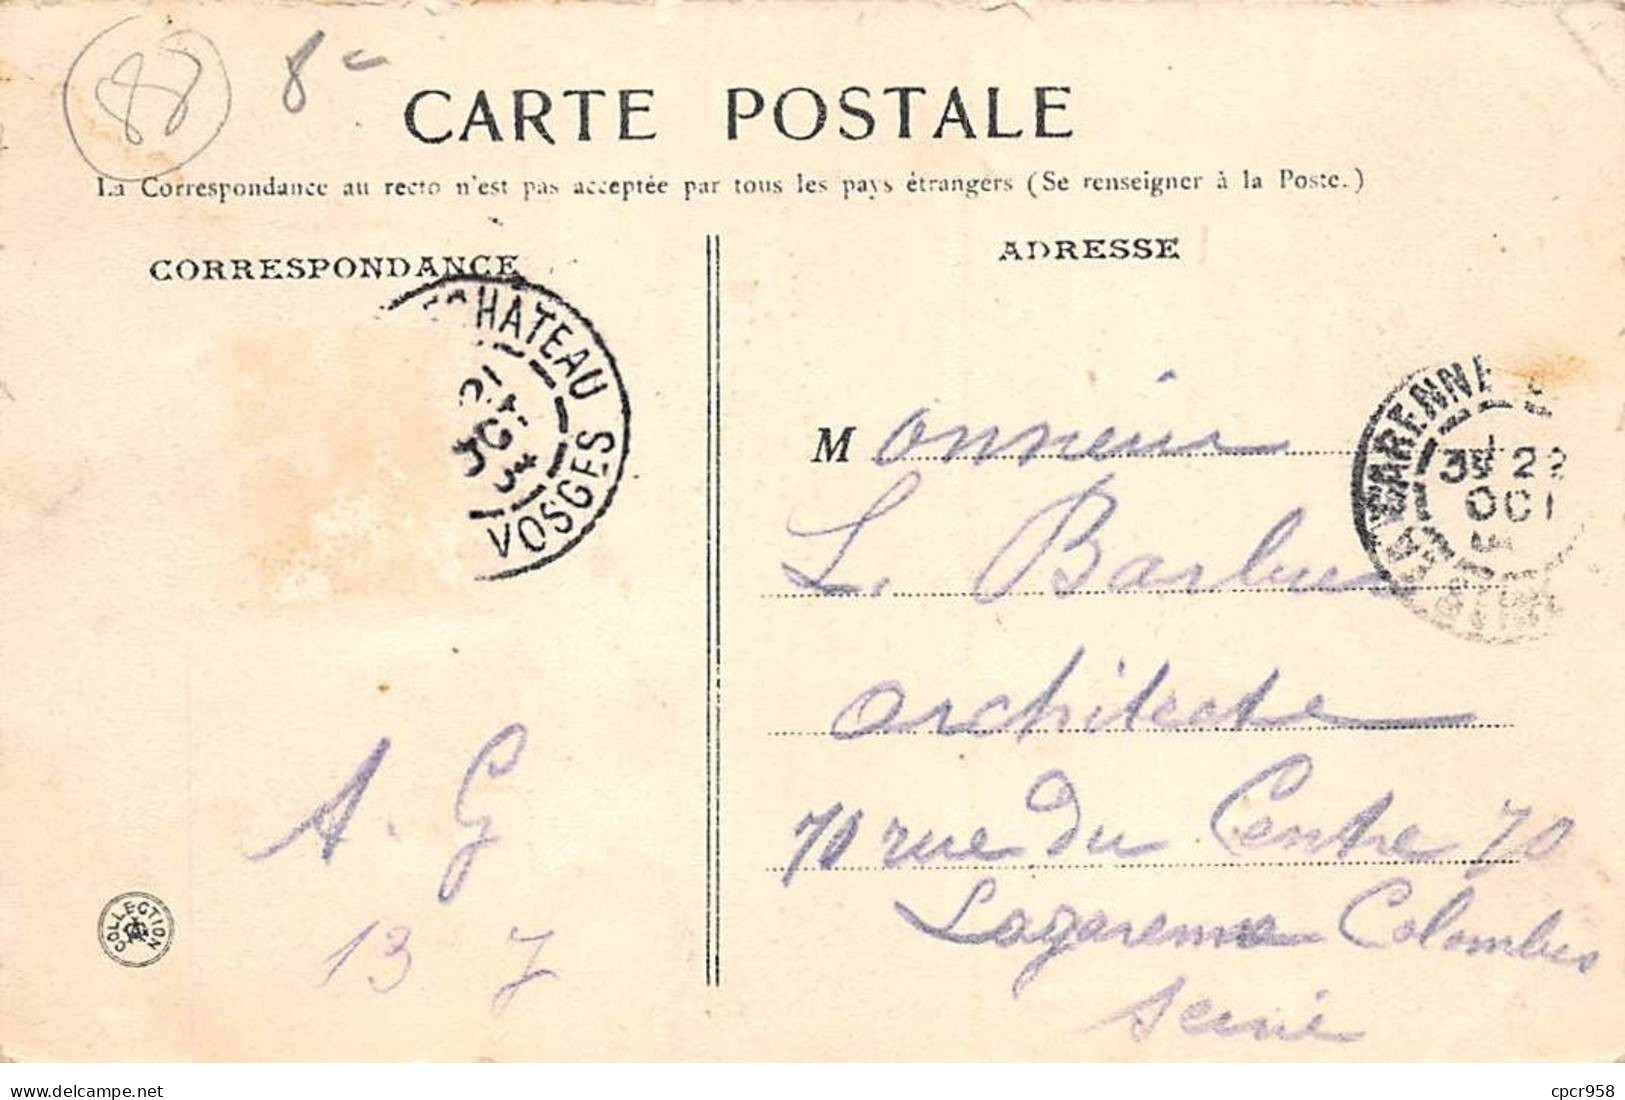 88 8
CARTE POSTALE
La Correspondance au recto n'est pas acceptée par tous les pays étrangers (Se renseigner à la Poste.)
CORRESPONDANCE
ADRESSE
CHATEAU
VOSGES
VARENNE
22
OCT
Monsieur
L. Barbues
architecte
70 rue du Centre 70
Lagarenne Colombes
Seine
A. G
13 7
COLLECTION
cpcr958